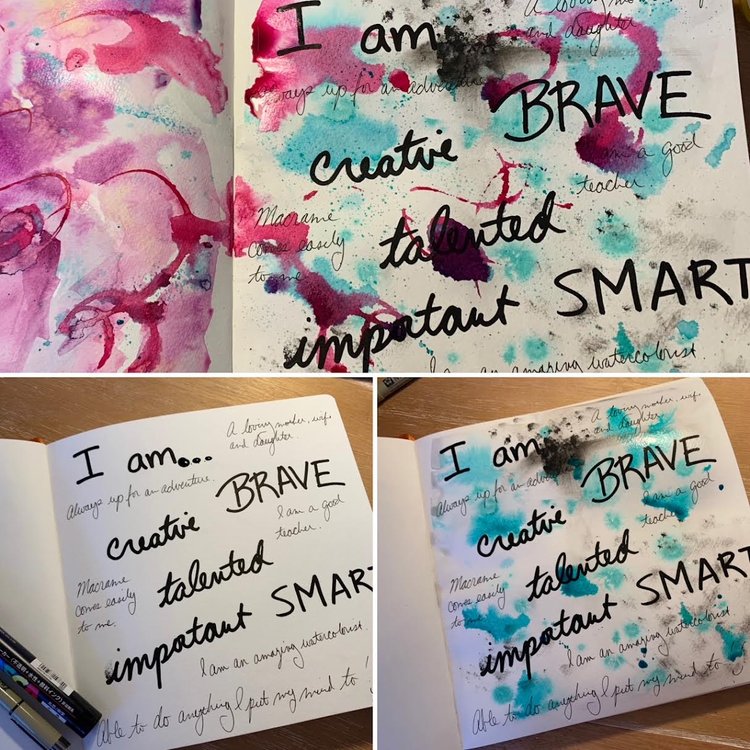 I am
A loving mo
and daughter
ways up for an adventure
BRAVE
creative
am a good
teacher
Macrame
comes easily
to me
talented
impotant
SMART
I am an amazing watercolourist
I am...
A loving mother, wife,
and daughter.
Always up for an adventure.
BRAVE
creative
I am a good
teacher.
Macrame
comes easily
to me.
talented
impotant
SMART
I am an amazing watercolourist.
Able to do anything I put my mind to!
I am
A loving mother, wife,
and daughter
Always up for an adven
BRAVE
creative
I am a good
teacher
Macrame
comes easily
to me.
talented
impotant
SMART
I am an amazing watercolourist
Able to do anything I put my mind to